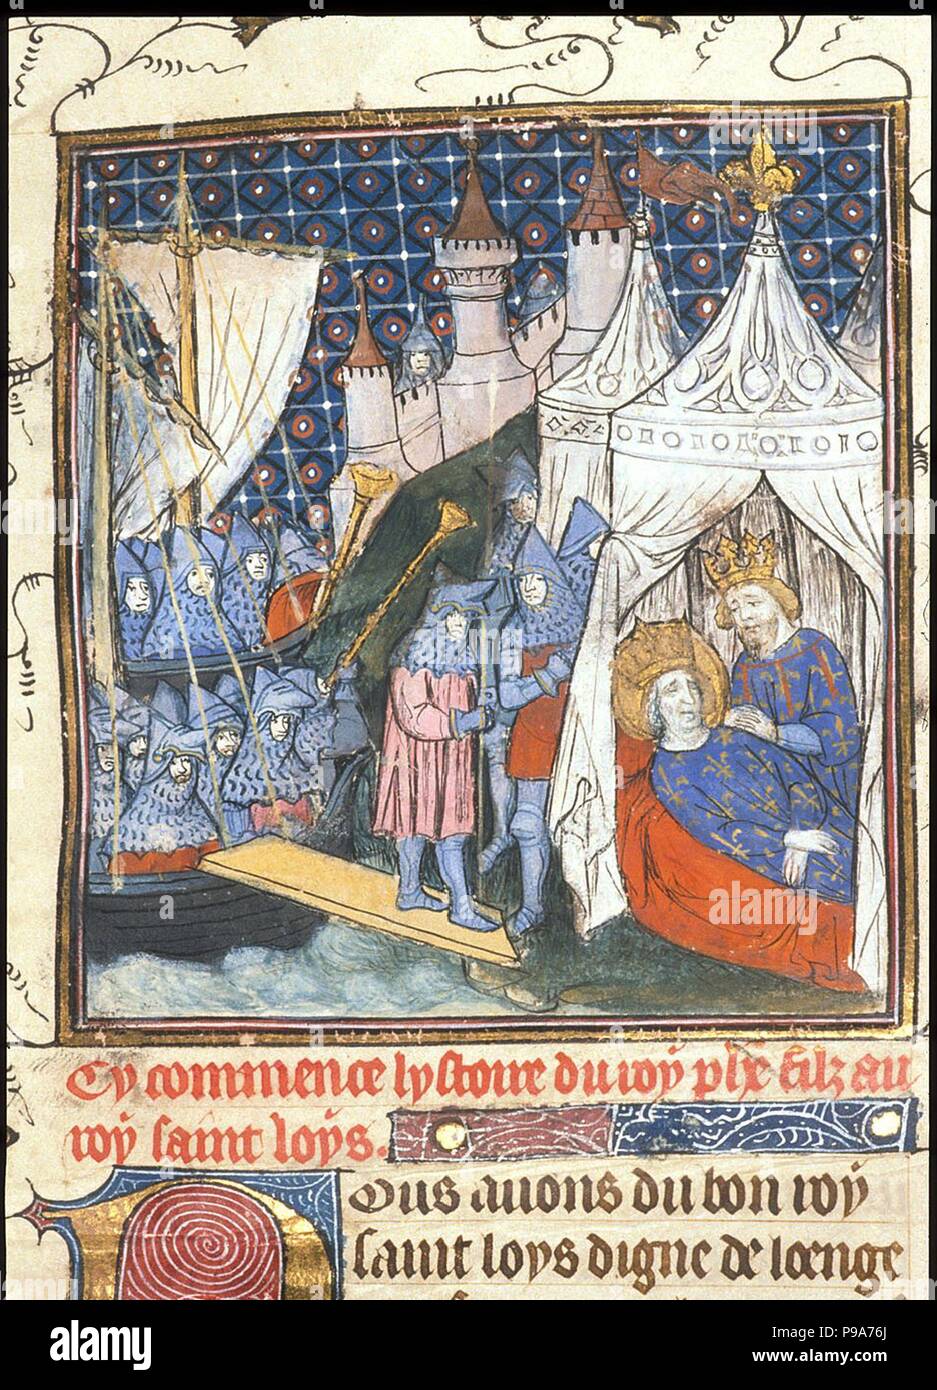 Cy commence lystoire du roy phẽ filz au
roy saint loys.
Nous auons du bon roy
saint loys digne de loenge
alamy
Image ID: P9A76J
www.alamy.com